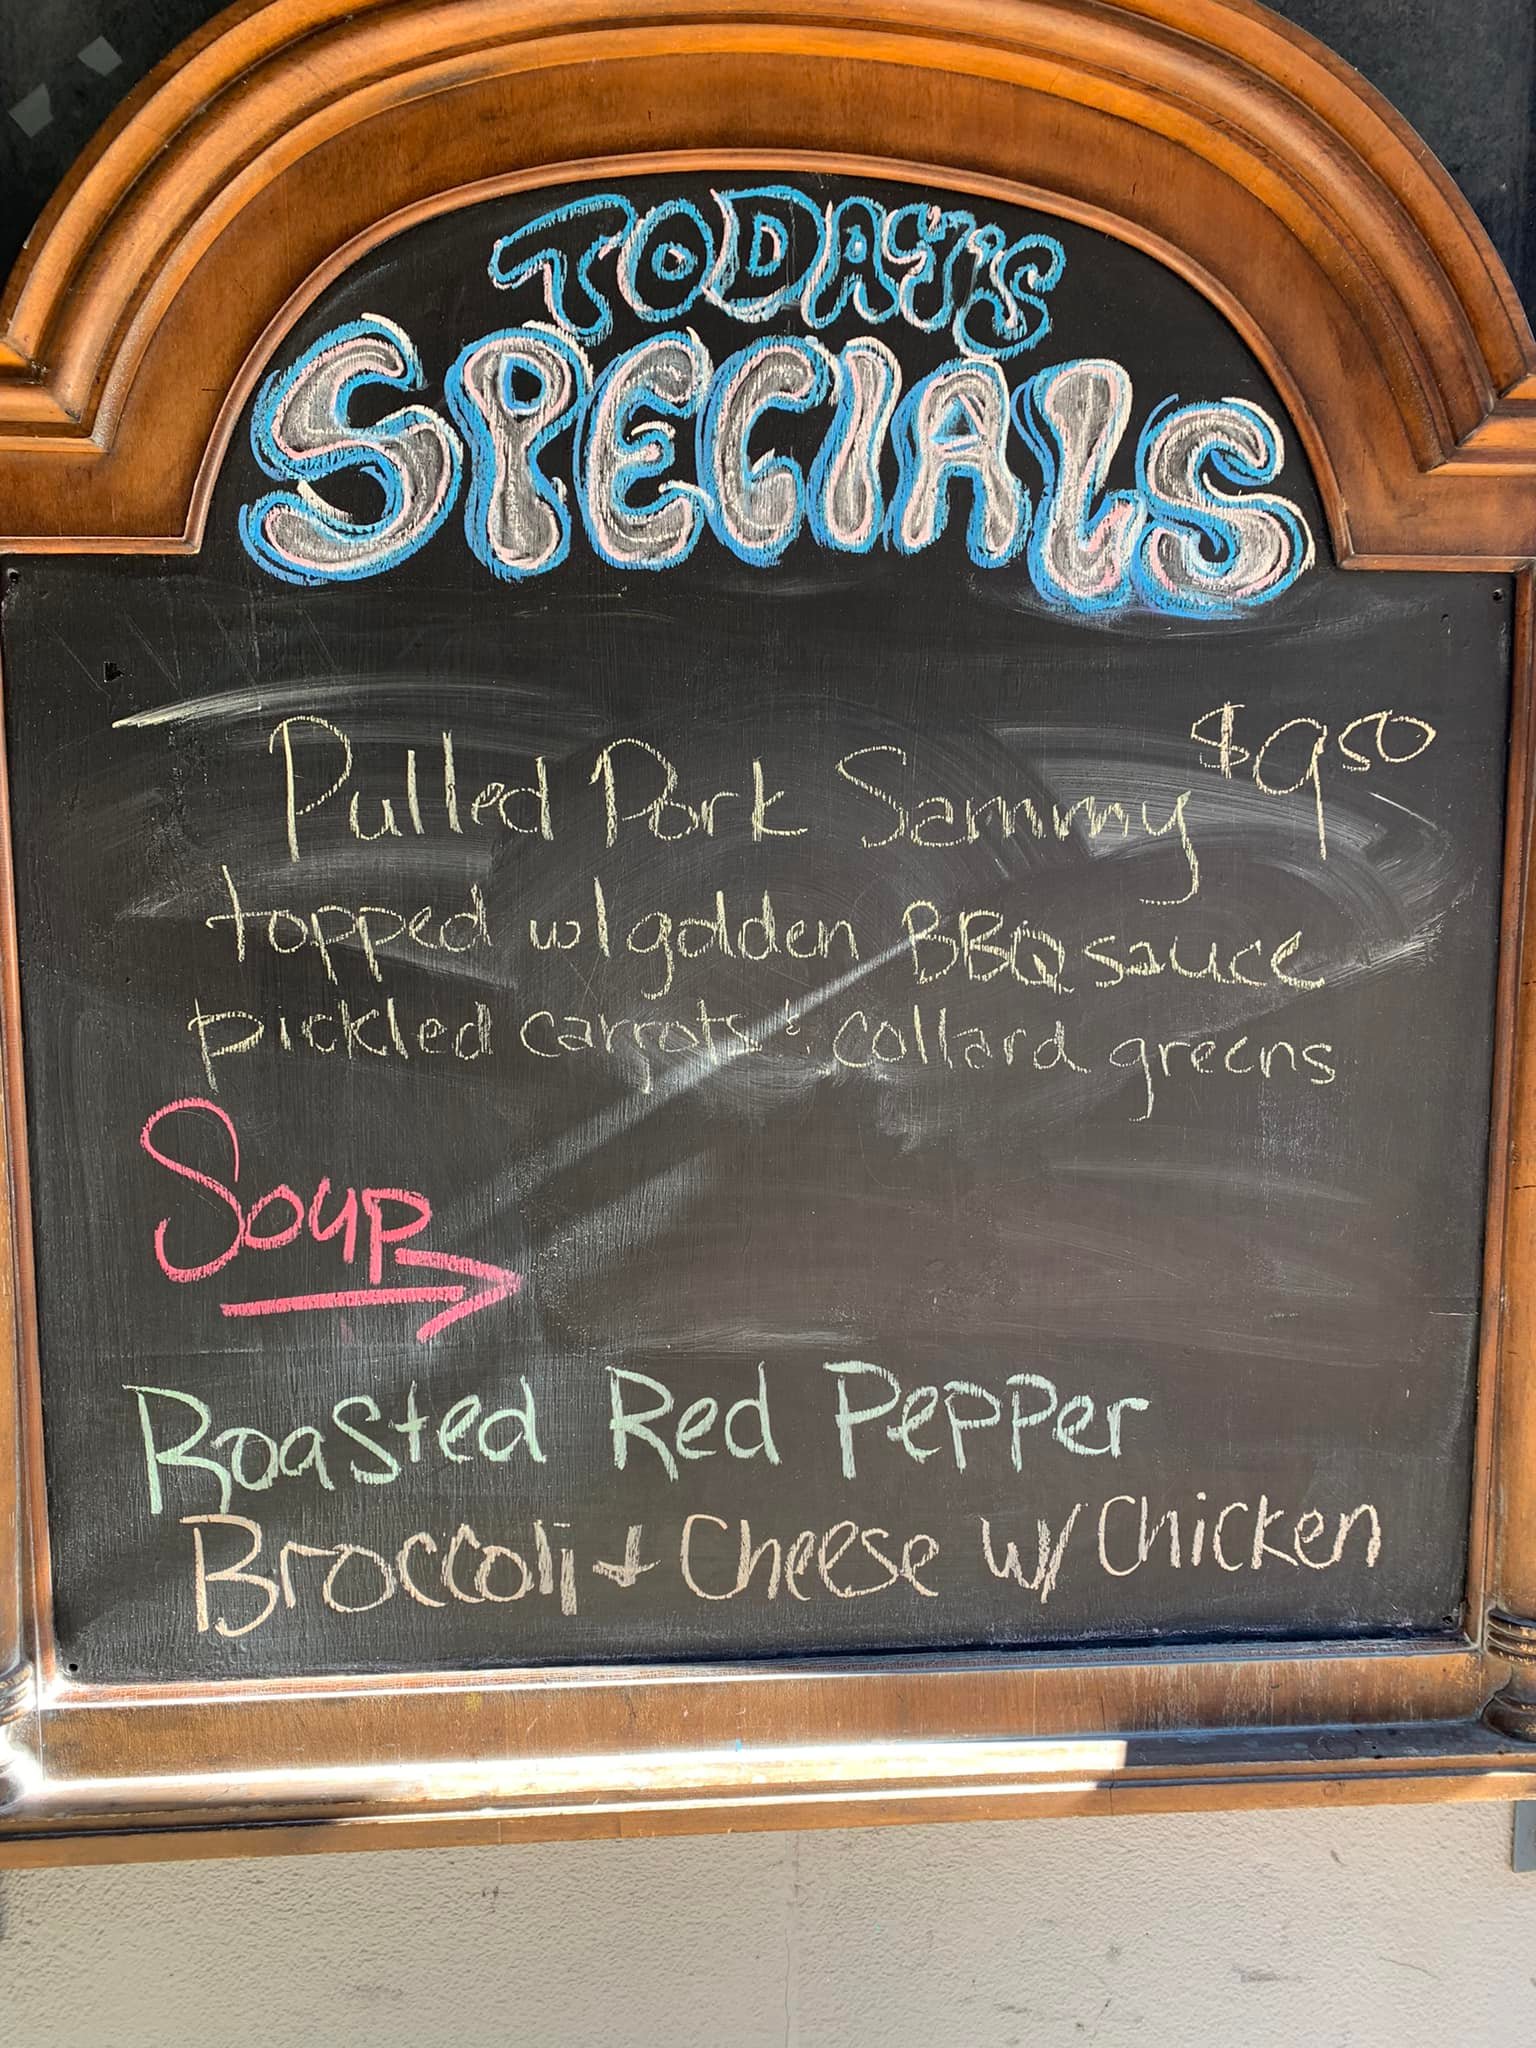 TODAY'S
SPECIALS
Pulled Pork Sammy $9.50
topped w/ golden BBQ sauce
pickled carrots & collard greens
Soup
Roasted Red Pepper
Broccoli + Cheese w/ Chicken